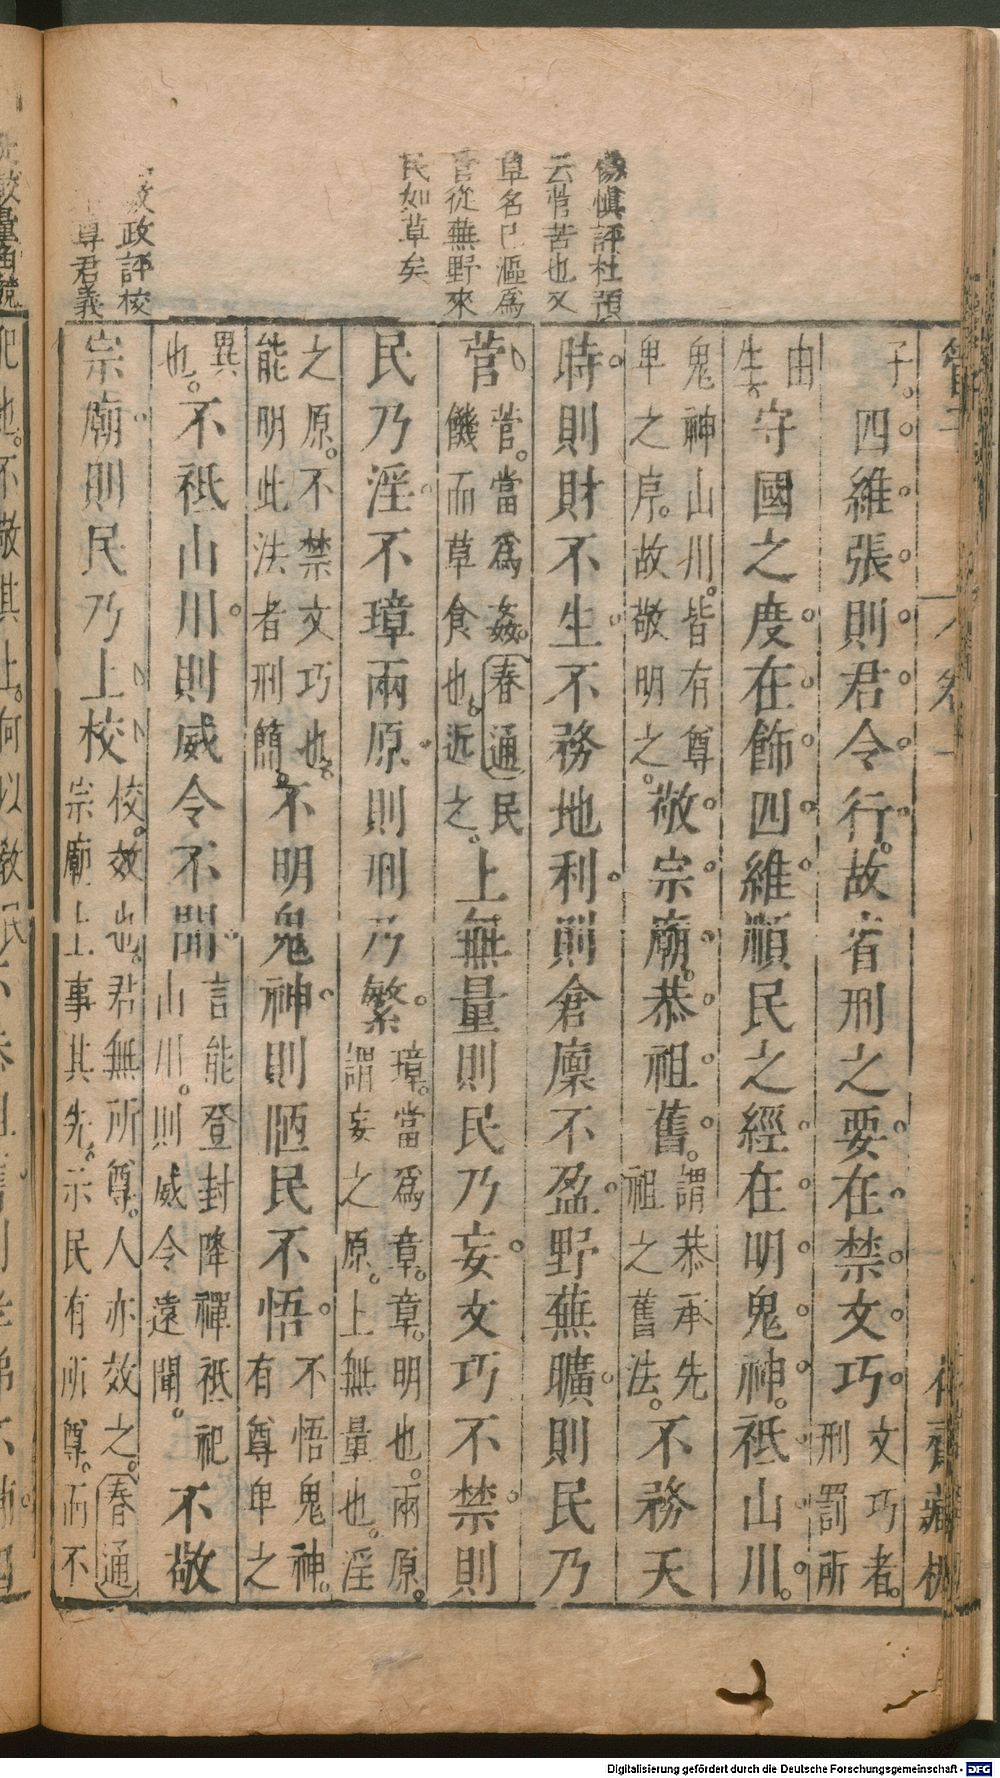 楊慎評杜預
云菅苦也又
草名已漚爲
菅從蕪野來
民如草矣
教政評校
尊君義
子。四維張則君令行。故省刑之要在禁文巧。文巧者。刑罰所
由生。守國之度在飾四維順民之經在明鬼神。祇山川。
鬼神山川。皆有尊卑之序。故敬明之。敬宗廟。恭祖舊。謂恭承先祖之舊法。不務天
時則財不生不務地利則倉廩不盈野蕪曠則民乃
菅菅。當爲姦。春通民饑而草食也。近之。上無量則民乃妄文巧不禁則
民乃淫不璋兩原則刑乃繁璋。當爲章。章。明也。兩原。謂妄之原。上無量也。淫
之原。不禁文巧也。能明此法者刑簡。不明鬼神則陋民不悟不悟鬼神。有尊卑之
異也。不祇山川則威令不聞言能登封降禪祇祀山川。則威令遠聞。不敬
宗廟則民乃上校校。效也。君無所尊。人亦效之。春通宗廟上事其先。示民有所尊。而不
Digitalisierung gefördert durch die Deutsche Forschungsgemeinschaft - DFG